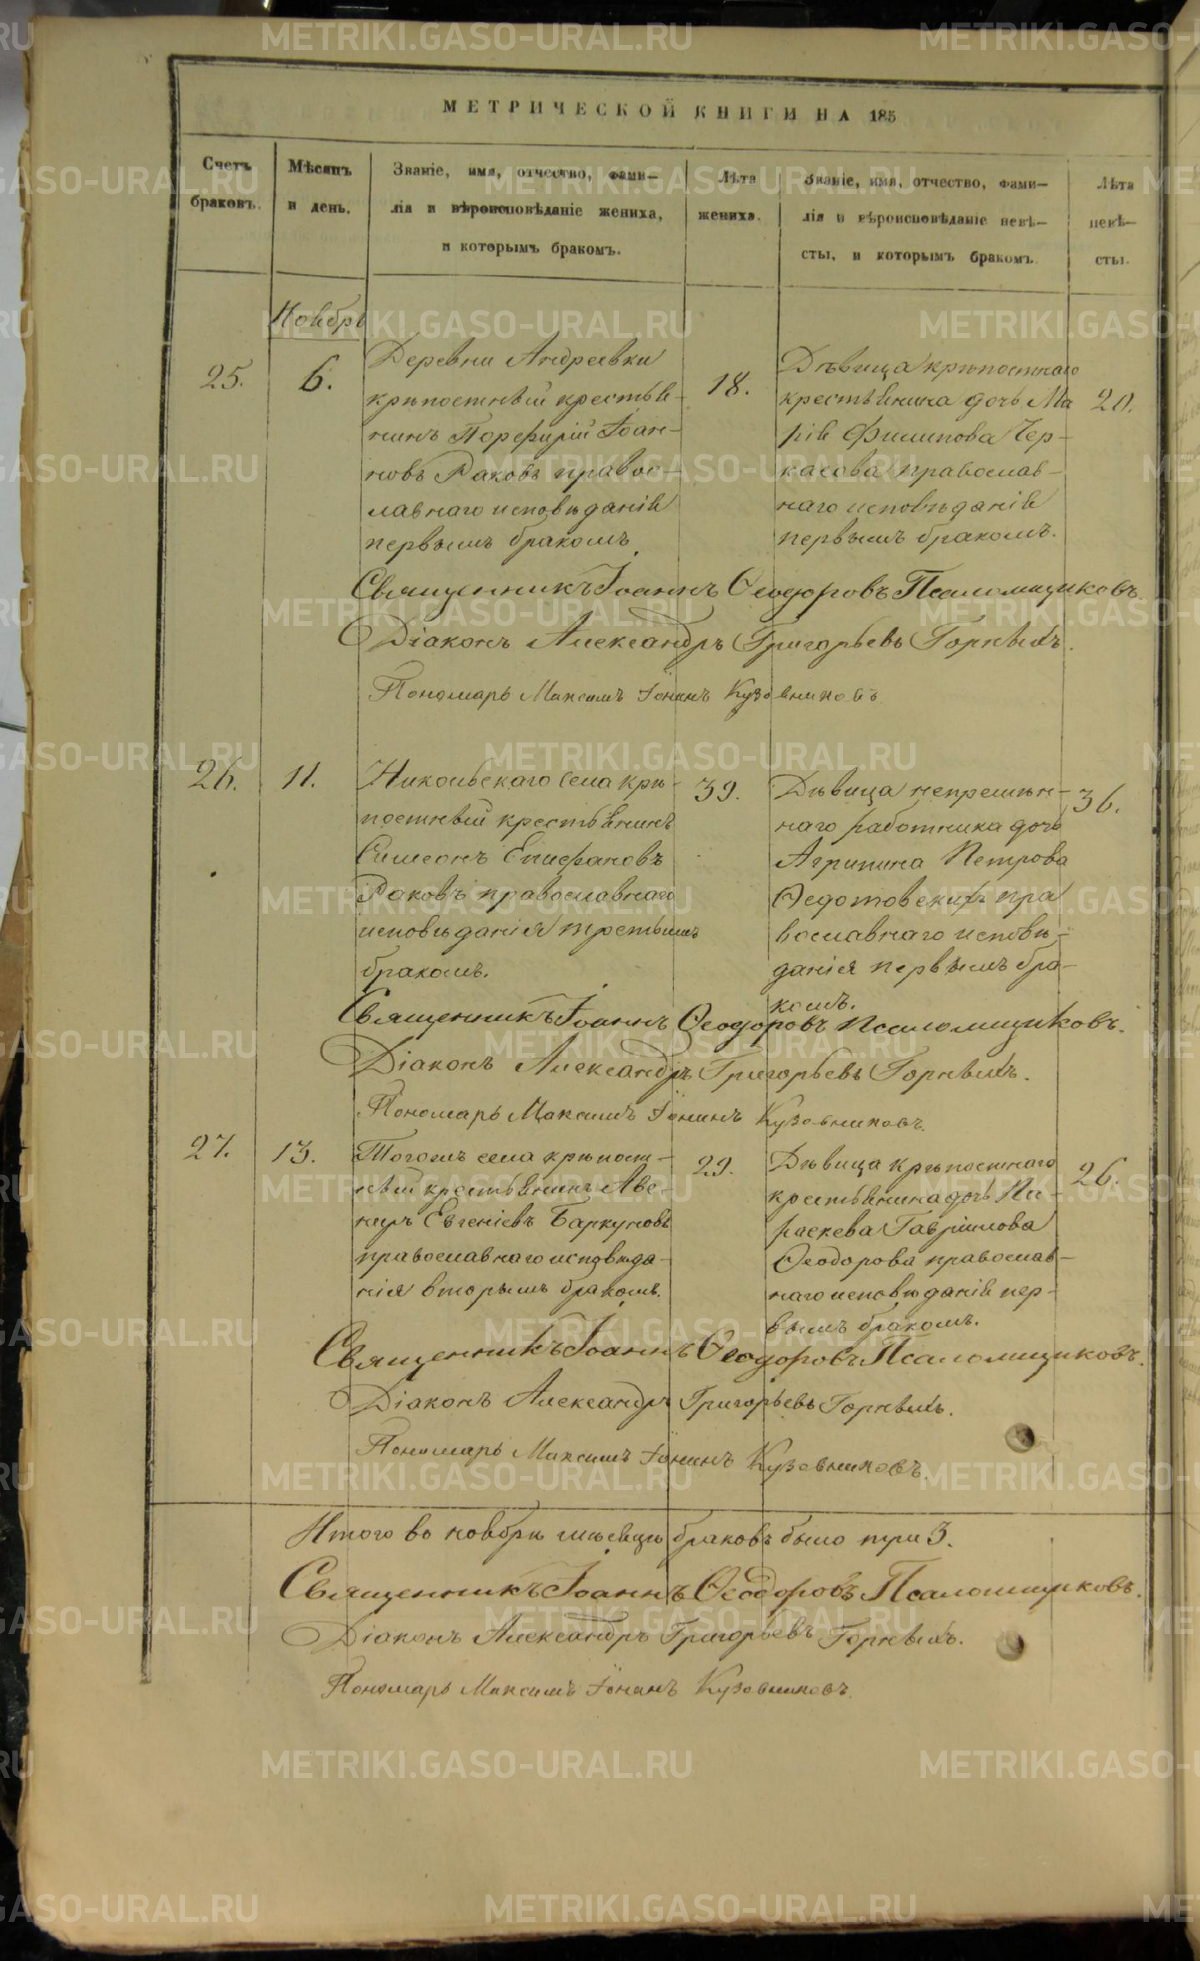 МЕТРИЧЕСКОЙ КНИГИ НА 185
Счетъ браковъ.
Мѣсяцъ и день.
Званіе, имя, отчество, фами-
лія и вѣроисповѣданіе жениха,
и которымъ бракомъ.
Лѣта жениха.
Званіе, имя, отчество, фами-
лія и вѣроисповѣданіе невѣ-
сты, и которымъ бракомъ
Лѣта невѣ-
сты.
Ноябрь
25.
6.
Деревни Андреевки
крѣпостный крестья-
нинъ Порфирій Іоан-
новъ Раковъ правос-
лавнаго исповѣданія
первымъ бракомъ
18.
Дѣвица крѣпостнаго
крестьянина дочь Ма
рія Филипова Чер-
касова православ-
наго исповѣданія
первымъ бракомъ.
20.
Священникъ Іоаннъ Ѳеодоровъ Псаломщиковъ.
Діаконъ Александръ Григорьевъ Горныхъ.
Пономарь Максимъ Іонинъ Кузовниковъ
26.
11.
Никольскаго села крѣ-
постный крестьянинъ
Симеонъ Епифановъ
Раковъ православнаго
исповѣданія третьимъ
бракомъ.
39.
Дѣвица непремѣн-
наго работника дочь
Агрипина Петрова
Ѳедотовскихъ пра
вославнаго исповѣ-
данія первымъ бра-
комъ.
36.
Священникъ Іоаннъ Ѳеодоровъ Псаломщиковъ.
Діаконъ Александръ Григорьевъ Горныхъ.
Пономарь Максимъ Іонинъ Кузовниковъ.
27.
13.
Тогожъ села крѣпост-
ный крестьянинъ Аве-
ниръ Евгеніевъ Баркуновъ
православнаго исповѣда-
нія вторымъ бракомъ.
29.
Дѣвица крѣпостнаго
крестьянина дочь Па-
раскева Гавріилова
Ѳеодорова православ-
наго исповѣданія пер-
вымъ бракомъ.
26.
Священникъ Іоаннъ Ѳеодоровъ Псаломщиковъ.
Діаконъ Александръ Григорьевъ Горныхъ.
Пономарь Максимъ Іонинъ Кузовниковъ.
Итого во ноябрѣ мѣсяцѣ браковъ было три 3.
Священникъ Іоаннъ Ѳеодоровъ Псаломщиковъ.
Діаконъ Александръ Григорьевъ Горныхъ.
Пономарь Максимъ Іонинъ Кузовниковъ.
METRIKI.GASO-URAL.RU